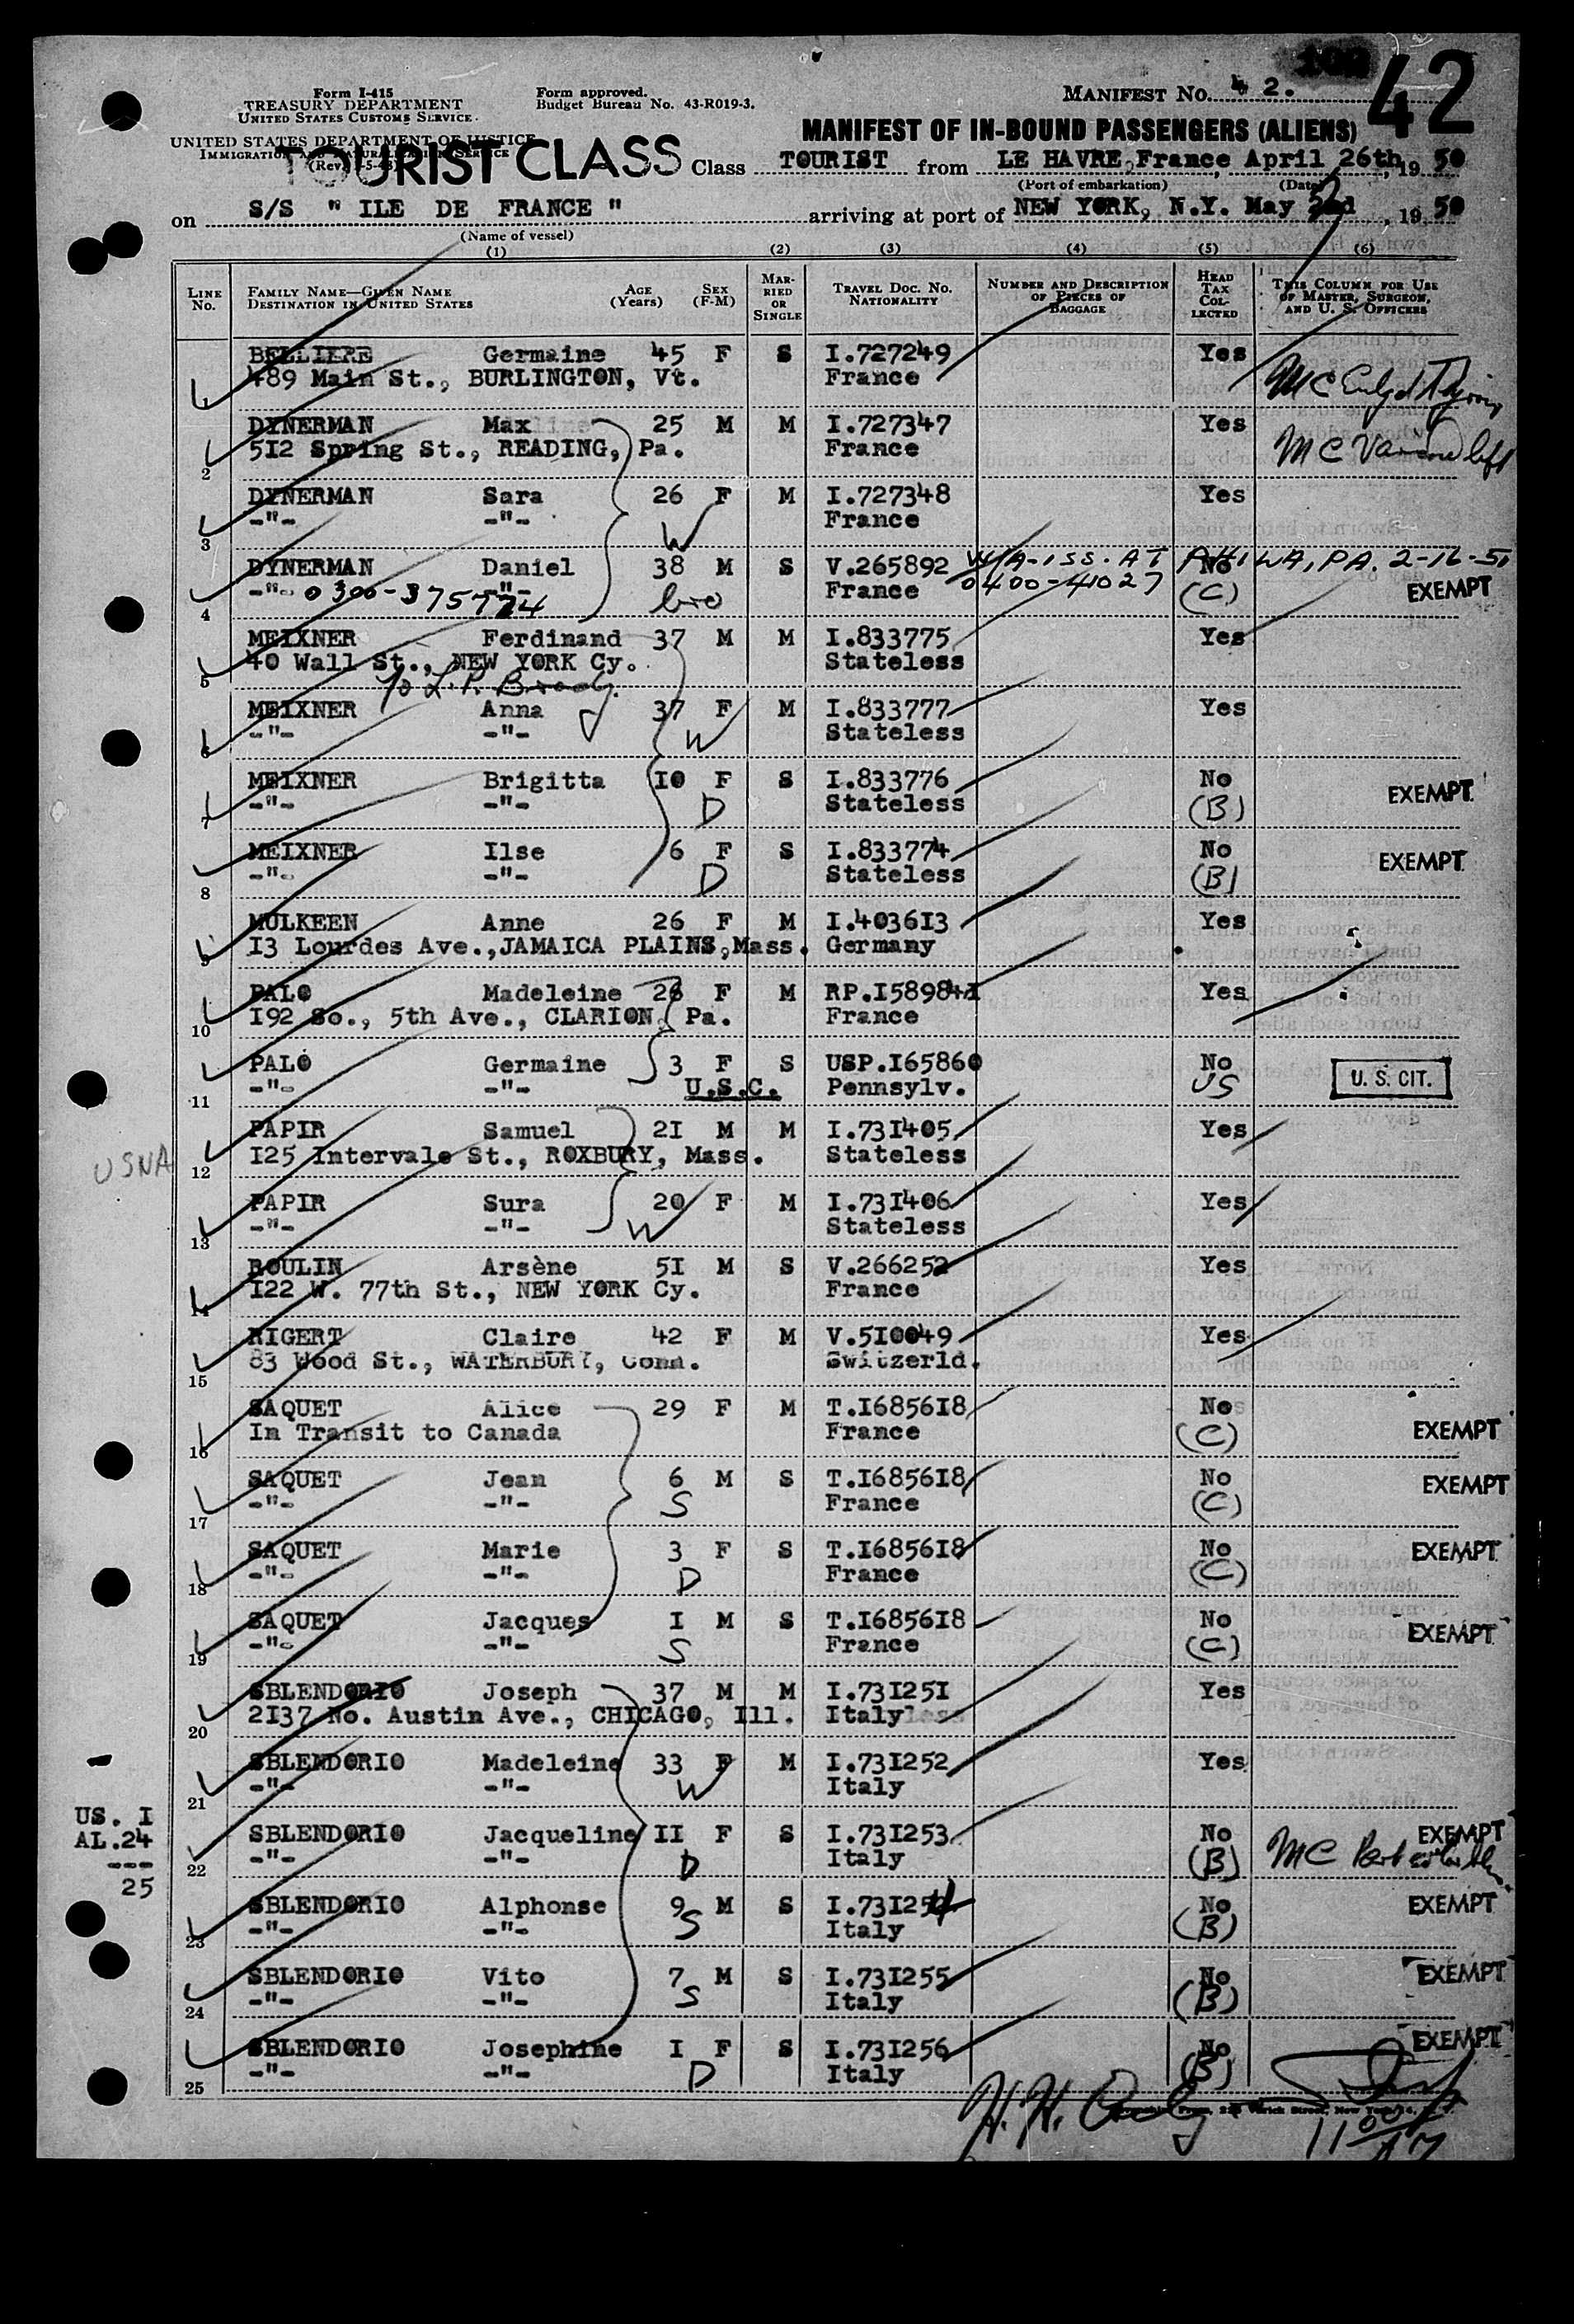 Form I-415
TREASURY DEPARTMENT
UNITED STATES CUSTOMS SERVICE.
UNITED STATES DEPARTMENT OF JUSTICE
IMMIGRATION AND NATURALIZATION SERVICE
Form approved.
Budget Bureau No. 43-R019-3.
MANIFEST No. 4 2.
42
MANIFEST OF IN-BOUND PASSENGERS (ALIENS)
TOURIST CLASS
Class TOURIST from LE HAVRE, France, April 26th, 19 50
(Port of embarkation) (Date)
on S/S " ILE DE FRANCE " arriving at port of NEW YORK, N.Y. May 2nd, 19 50
(Name of vessel)
(1) (2) (3) (4) (5) (6)
LINE No. FAMILY NAME—GIVEN NAME DESTINATION IN UNITED STATES AGE (Years) SEX (F-M) MARRIED OR SINGLE TRAVEL DOC. NO. NATIONALITY NUMBER AND DESCRIPTION OF PIECES OF BAGGAGE HEAD TAX COLLECTED THIS COLUMN FOR USE OF MASTER, SURGEON, AND U. S. OFFICERS
BELLIERE Germaine 45 F S I.727249 Yes
1 489 Main St., BURLINGTON, Vt. France
DYNERMAN Max 25 M M I.727347 Yes
2 512 Spring St., READING, Pa. France
DYNERMAN Sara 26 F M I.727348 Yes
3 -"- -"- W France
DYNERMAN Daniel 38 M S V.265892 W/A-ISS. AT PHILA, PA. 2-16-51 No
4 -"- 0300-375774 -"- bro France 0400-41027 (C) EXEMPT
MEIXNER Ferdinand 37 M M I.833775 Yes
5 40 Wall St., NEW YORK Cy. Stateless
MEIXNER Anna 37 F M I.833777 Yes
6 -"- -"- W Stateless
MEIXNER Brigitta 10 F S I.833776 No
7 -"- -"- D Stateless (B) EXEMPT
MEIXNER Ilse 6 F S I.833774 No
8 -"- -"- D Stateless (B) EXEMPT
MULKEEN Anne 26 F M I.403613 Yes
9 13 Lourdes Ave.,JAMAICA PLAINS,Mass. Germany
PALO Madeleine 26 F M RP.158984 Yes
10 192 So., 5th Ave., CLARION, Pa. France
PALO Germaine 3 F S USP.165860 No
11 -"- -"- U.S.C. Pennsylv. US U. S. CIT.
PAPIR Samuel 21 M M I.731405 Yes
USNA 12 125 Intervale St., ROXBURY, Mass. Stateless
PAPIR Sura 20 F M I.731406 Yes
13 -"- -"- W Stateless
BOULIN Arsène 51 M S V.266252 Yes
14 122 W. 77th St., NEW YORK Cy. France
NIGERT Claire 42 F M V.510049 Yes
15 83 Wood St., WATERBURY, Conn. Switzerld.
SAQUET Alice 29 F M T.1685618 No
16 In Transit to Canada France (C) EXEMPT
SAQUET Jean 6 M S T.1685618 No
17 -"- -"- S France (C) EXEMPT
SAQUET Marie 3 F S T.1685618 No
18 -"- -"- D France (C) EXEMPT
SAQUET Jacques 1 M S T.1685618 No
19 -"- -"- S France (C) EXEMPT
SBLENDORIO Joseph 37 M M I.731251 Yes
20 2137 No. Austin Ave., CHICAGO, Ill. Italy
SBLENDORIO Madeleine 33 F M I.731252 Yes
21 -"- -"- W Italy
SBLENDORIO Jacqueline 11 F S I.731253 No EXEMPT
22 -"- -"- D Italy (B) MC
US. I
AL.24
---
25
SBLENDORIO Alphonse 9 M S I.731254 No EXEMPT
23 -"- -"- S Italy (B)
SBLENDORIO Vito 7 M S I.731255 No EXEMPT
24 -"- -"- S Italy (B)
SBLENDORIO Josephine 1 F S I.731256 No EXEMPT
25 -"- -"- D Italy (B)